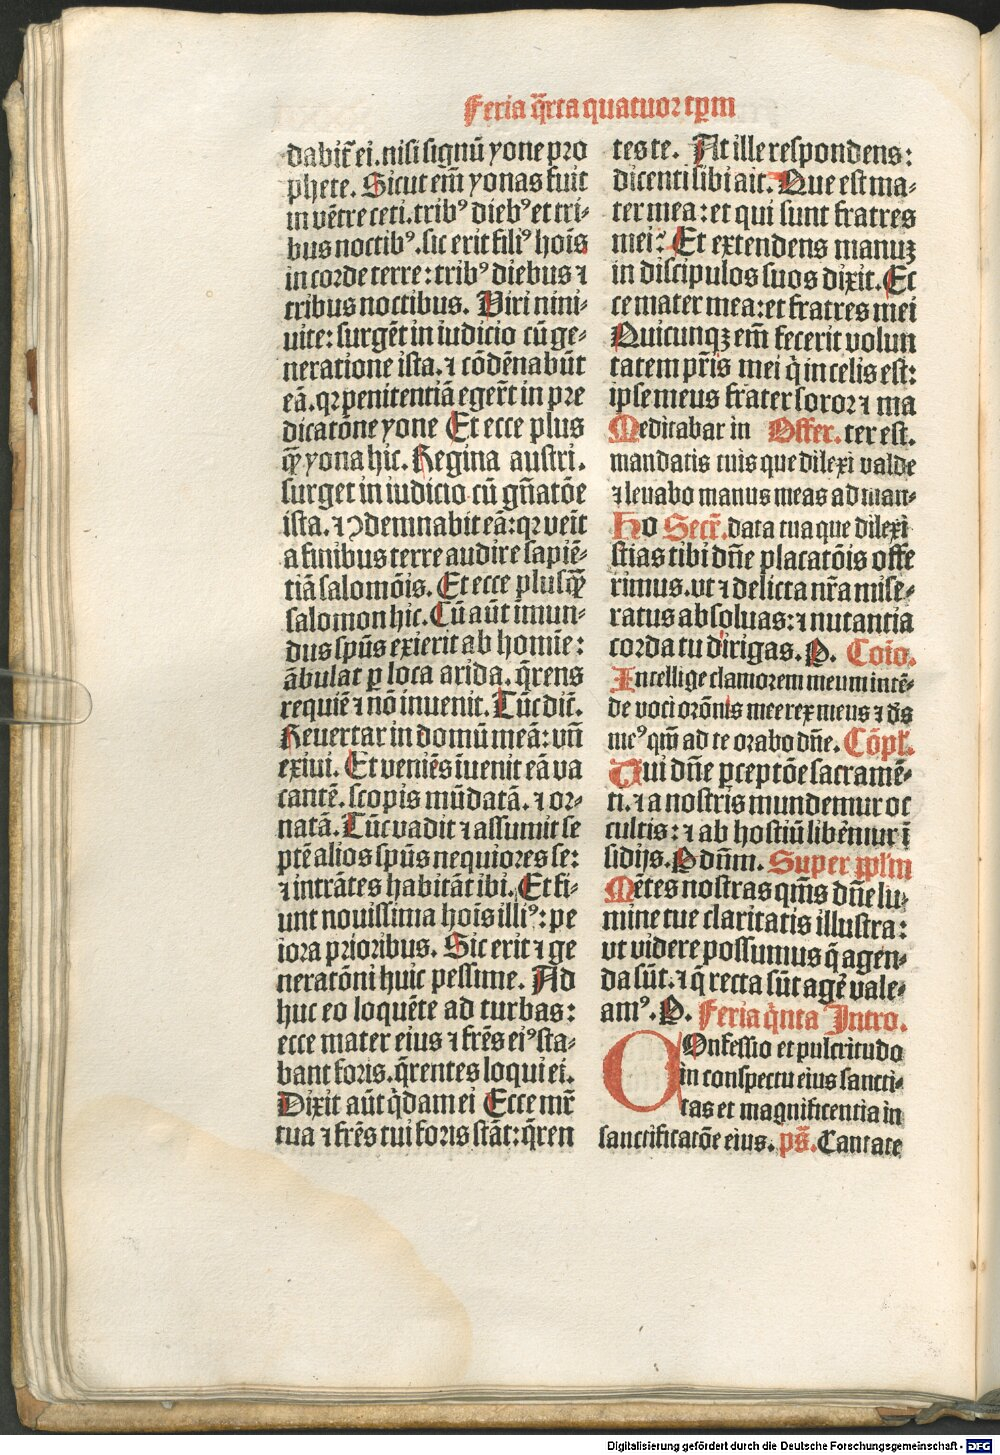 Feria q̄rta quatuor tp̄m
dabit̄ ei. nisi signū yone pro
phete. Sicut em̄ yonas fuit
in vētre ceti. tribꝰ diebꝰ et tri-
bus noctibꝰ. sic erit filiꝰ hoīs
in corde terre: tribꝰ diebus ⁊
tribus noctibus. Viri nini-
uite: surgēt in iudicio cū ge-
neratione ista. ⁊ cōdēnabūt
eā. qꝛ penitentiā egert̄ in pre
dicatōne yone Et ecce plus
qꝫ̄ yona hic. Regina austri.
surget in iudicio cū gn̄atōe
ista. ⁊ ꝯdemnabit eā: qꝛ veīt
a finibus terre audire sapiē-
tiā salomōis. Et ecce plusqꝫ̄
salomon hic. Cū aūt immun-
dus spūs exierit ab homīe:
ābulat ꝑ loca arida. q̄rens
requiē ⁊ nō inuenit. Tūc dic̄.
Reuertar in domū meā: vn̄
exiui. Et veniēs īuenit eā va
cantē. scopis mūdatā. ⁊ or-
natā. Tūc vadit ⁊ assumit se
ptē alios spūs nequiores se:
⁊ intrātes habitāt ibi. Et fi-
unt nouissima hoīs illiꝰ: pe
iora prioribus. Sic erit ⁊ ge
neratōni huic pessime. Ad
huc eo loquēte ad turbas:
ecce mater eius ⁊ fr̄es eiꝰ sta-
bant foris. q̄rentes loqui ei.
Dixit aūt q̇dam ei Ecce mr̄
tua ⁊ fr̄es tui foris stāt: q̄ren
tes te. At ille respondens:
dicenti sibi ait. Que est ma-
ter mea: et qui sunt fratres
mei? Et extendens manuꝫ
in discipulos suos dixit. Ec
ce mater mea: et fratres mei
Quicunqꝫ em̄ fecerit volun
tatem pr̄is mei q̇ in celis est:
ipse meus frater soror ⁊ ma
Meditabar in Offer. ter est.
mandatis tuis que dilexi valde
⁊ leuabo manus meas ad man-
Ho Secr̄. data tua que dilexi
stias tibi dn̄e placatōis offe
rimus. vt ⁊ delicta nr̄a mise-
ratus absoluas: ⁊ nutantia
corda tu dirigas. P. Coīo.
Intellige clamorem meum intē-
de voci orōnis mee rex meus ⁊ ds̄
meꝰ qm̄ ad te orabo dn̄e. Cōpl̄.
Tui dn̄e ꝑceptōe sacramē-
ti. ⁊ a nostris mundemur oc
cultis: ⁊ ab hostiū libemur ī
sidijs. P dn̄m. Super ppl̄m
Mētes nostras qm̄s dn̄e lu-
mine tue claritatis illustra:
vt videre possumus q̄ agen-
da sūt. ⁊ q̄ recta sūt agē vale-
amꝰ. P. Feria q̇nta Intro.
COnfessio et pulcritudo
in conspectu eius sancti-
tas et magnificentia in
sanctificatōe eius. ps̄. Cantate
Digitalisierung gefördert durch die Deutsche Forschungsgemeinschaft - DFG